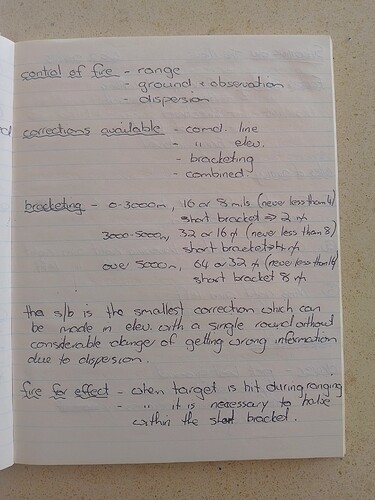 control of fire - range
- ground & observation
- dispersion
corrections available - comd. line
- " elev.
- bracketing
- combined
bracketing - 0-3000m, 16 or 8 mils (never less than 4)
short bracket => 2 m
3000-5000m, 32 or 16 m (never less than 8)
short bracket => 4 m
over 5000m, 64 or 32 m (never less than 16)
short bracket 8 m
the s/b is the smallest correction which can
be made in elev. with a single round without
considerable danger of getting wrong information
due to dispersion.
fire for effect - when target is hit during ranging
- " it is necessary to halve
within the short bracket.